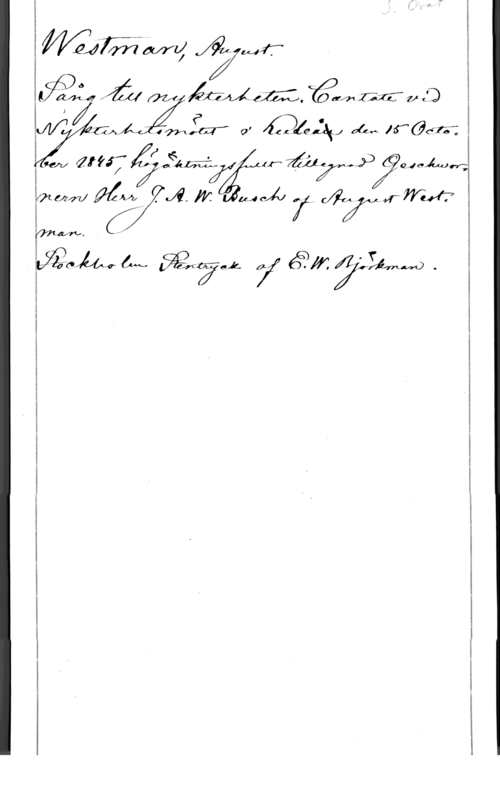 S. Orat
Westman, August.
Sång till nykterheten. Cantate vid
Nykterhetsmötet i Luleå den 15 Octo-
ber 1845, högaktningsfullt tillegnad Geschwor-
nern Herr J. A. W. Busch af August West-
man.
Stockholm Stentryck af E. W. Björkman.